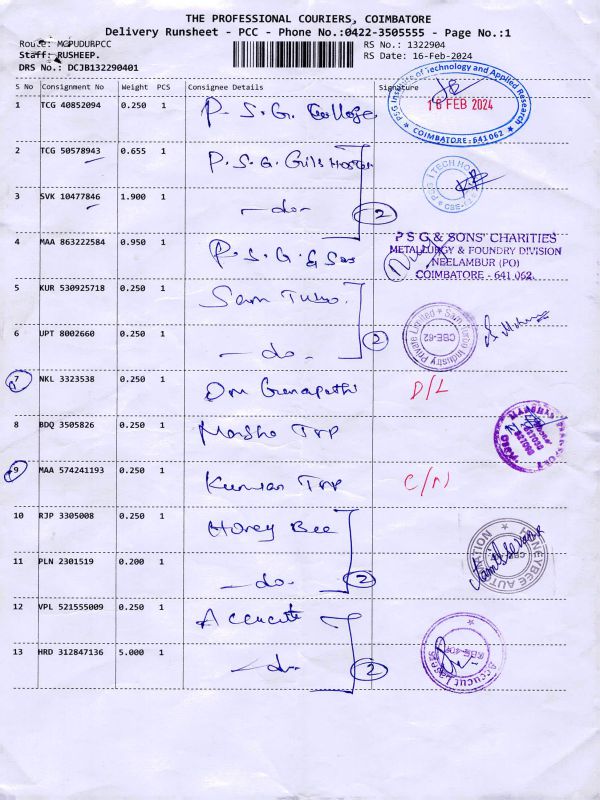 THE PROFESSIONAL COURIERS, COIMBATORE
Delivery Runsheet - PCC - Phone No.:0422-3505555 - Page No.:1
Route: MGPUDURPCC RS No.: 1322904
Staff: RUSHEEP. RS Date: 16-Feb-2024
DRS No.: DCJB132290401
S No Consignment No Weight PCS Consignee Details Signature
1 TCG 40852094 0.250 1 P. S. G. College
PSG Institute of Technology and Applied Research
16 FEB 2024
COIMBATORE-641 062
2 TCG 50578943 0.655 1 P. S. G. Girls Hostel
3 SVK 10477846 1.900 1 -do- 2
4 MAA 863222584 0.950 1 P. S. G. & Sons
P S G & SONS' CHARITIES
METALLURGY & FOUNDRY DIVISION
NEELAMBUR (PO)
COIMBATORE - 641 062.
5 KUR 530925718 0.250 1 Sam Turbo.
6 UPT 8002660 0.250 1 -do- 2
Sam Turbo Industry Private Limited
CBE-62
7 NKL 3323538 0.250 1 Om Ganapathi D/L
8 BDQ 3505826 0.250 1 Marsha Trp
9 MAA 574241193 0.250 1 Kumaran Trp C/N
10 RJP 3305008 0.250 1 Honey Bee
11 PLN 2301519 0.200 1 -do- 2
HONEYBEE AUTOMATION
12 VPL 521555009 0.250 1 Accucut
13 HRD 312847136 5.000 1 -do- 2